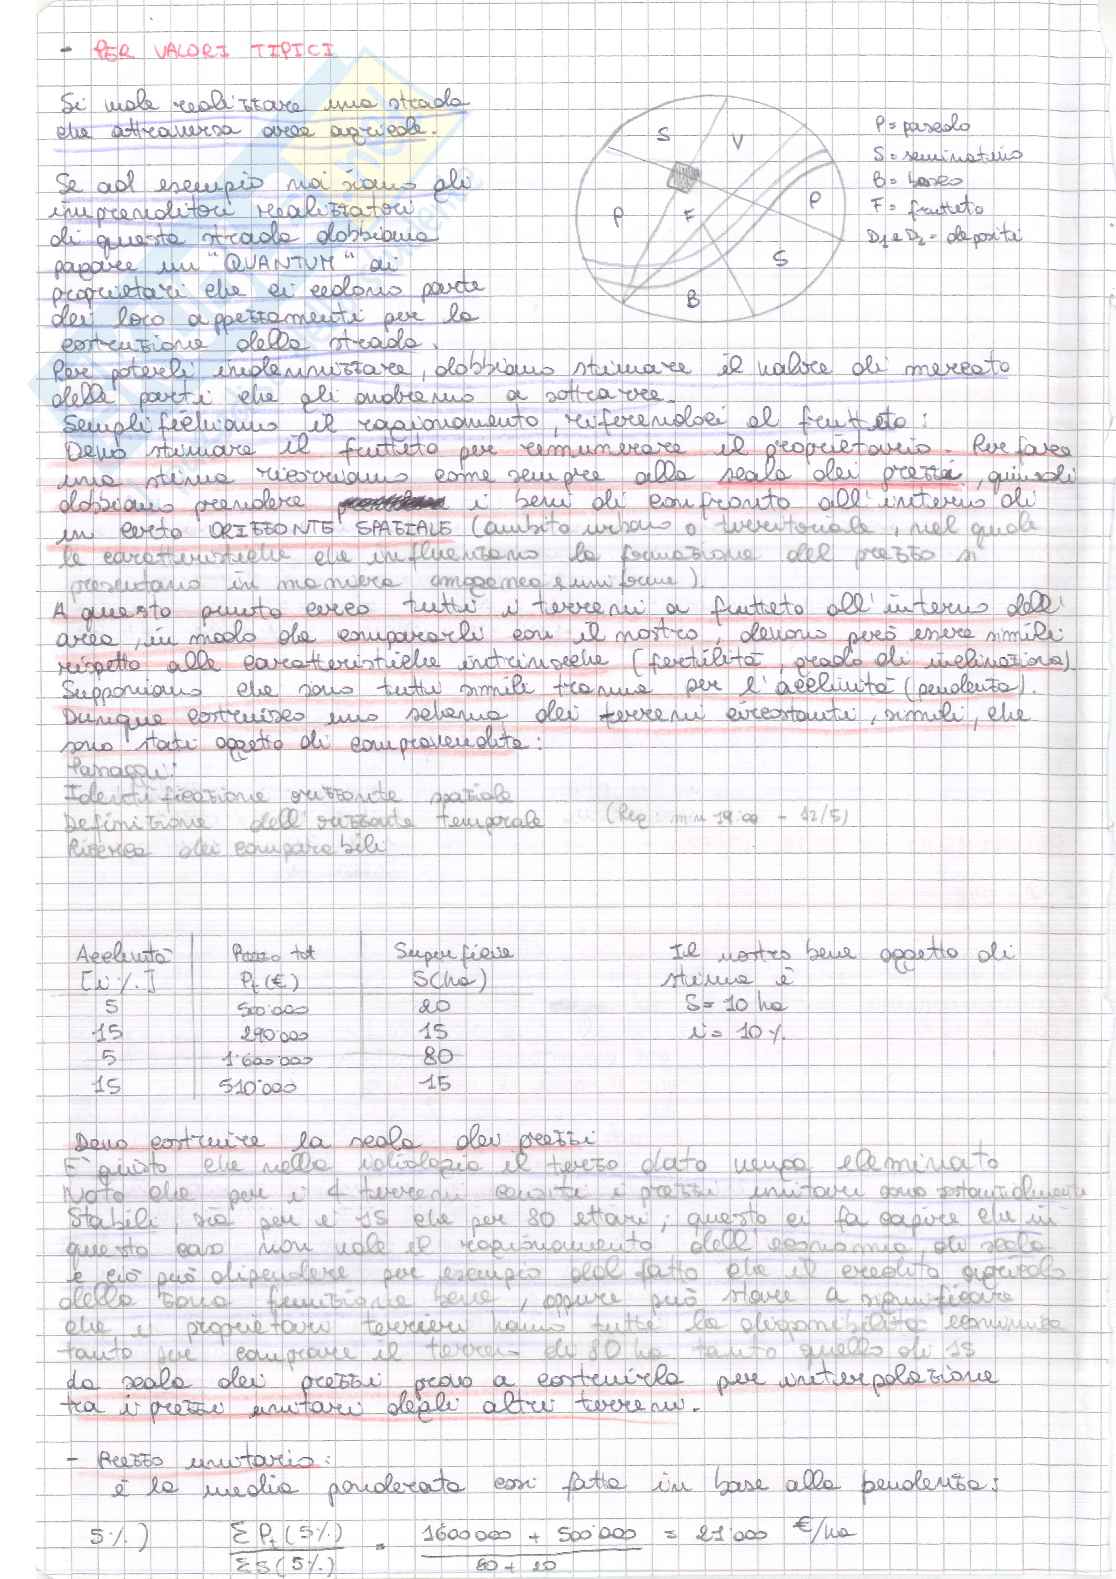 - PER VALORI TIPICI
Si vuole realizzare una strada
che attraversa aree agricole.
Se ad esempio noi siamo gli
imprenditori realizzatori
di questa strada dobbiamo
pagare un "QUANTUM" ai
proprietari che ci cedono parte
dei loro appezzamenti per la
costruzione della strada.
Per poterli indennizzare, dobbiamo stimare il valore di mercato
delle parti che gli andremo a sottrarre.
Semplifichiamo il ragionamento, riferendoci al frutteto:
Devo stimare il frutteto per remunerare il proprietario. Per fare
una stima ricorriamo come sempre alla scala dei prezzi, quindi
dobbiamo prendere i beni di confronto all'interno di
un certo ORIZZONTE SPAZIALE (ambito urbano o territoriale, nel quale
le caratteristiche che influenzano la formazione del prezzo si
presentano in maniera omogenea e uniforme).
A questo punto cerco tutti i terreni a frutteto all'interno dell'
area, in modo da compararli con il nostro, devono però essere simili
rispetto alle caratteristiche intrinseche (fertilità, grado di inclinazione)
Supponiamo che sono tutti simili tranne per l'acclività (pendenza).
Dunque costruisco uno schema dei terreni circostanti, simili, che
sono stati oggetto di compravendita:
Passaggi:
Identificazione orizzonte spaziale
Definizione dell'orizzonte temporale (Reg: min 19:00 - 12/5)
Ricerca dei comparabili
S
V
P
F
P
S
B
P = pascolo
S = seminativo
B = bosco
F = frutteto
D1 e D2 = depositi
Acclività Prezzo tot Superficie
[i %] Pt (€) S(ha)
5 500'000 20
15 290'000 15
5 1'600'000 80
15 510'000 15
Il nostro bene oggetto di
stima è
S = 10 ha
i = 10 %
Devo costruire la scala dei prezzi
E' giusto che nella il terzo dato venga eliminato
Noto che per i 4 terreni i prezzi unitari sono sostanzialmente
stabili, sia per i 15 che per 80 ettari; questo ci fa capire che in
questo caso non vale il ragionamento dell'economia di scala
e ciò può dipendere per esempio dal fatto che il credito agricolo
della zona funziona bene, oppure può stare a significare
che i proprietari terrieri hanno tutti la disponibilità economica
tanto per comprare il terreno di 80 ha tanto quello di 15
La scala dei prezzi provo a costruirla per interpolazione
tra i prezzi unitari degli altri terreni.
- Prezzo unitario:
è la media ponderata così fatta in base alla pendenza:
5%) ΣPt(5%) / ΣS(5%) = 1600000 + 500'000 / 80 + 20 = 21'000 €/ha